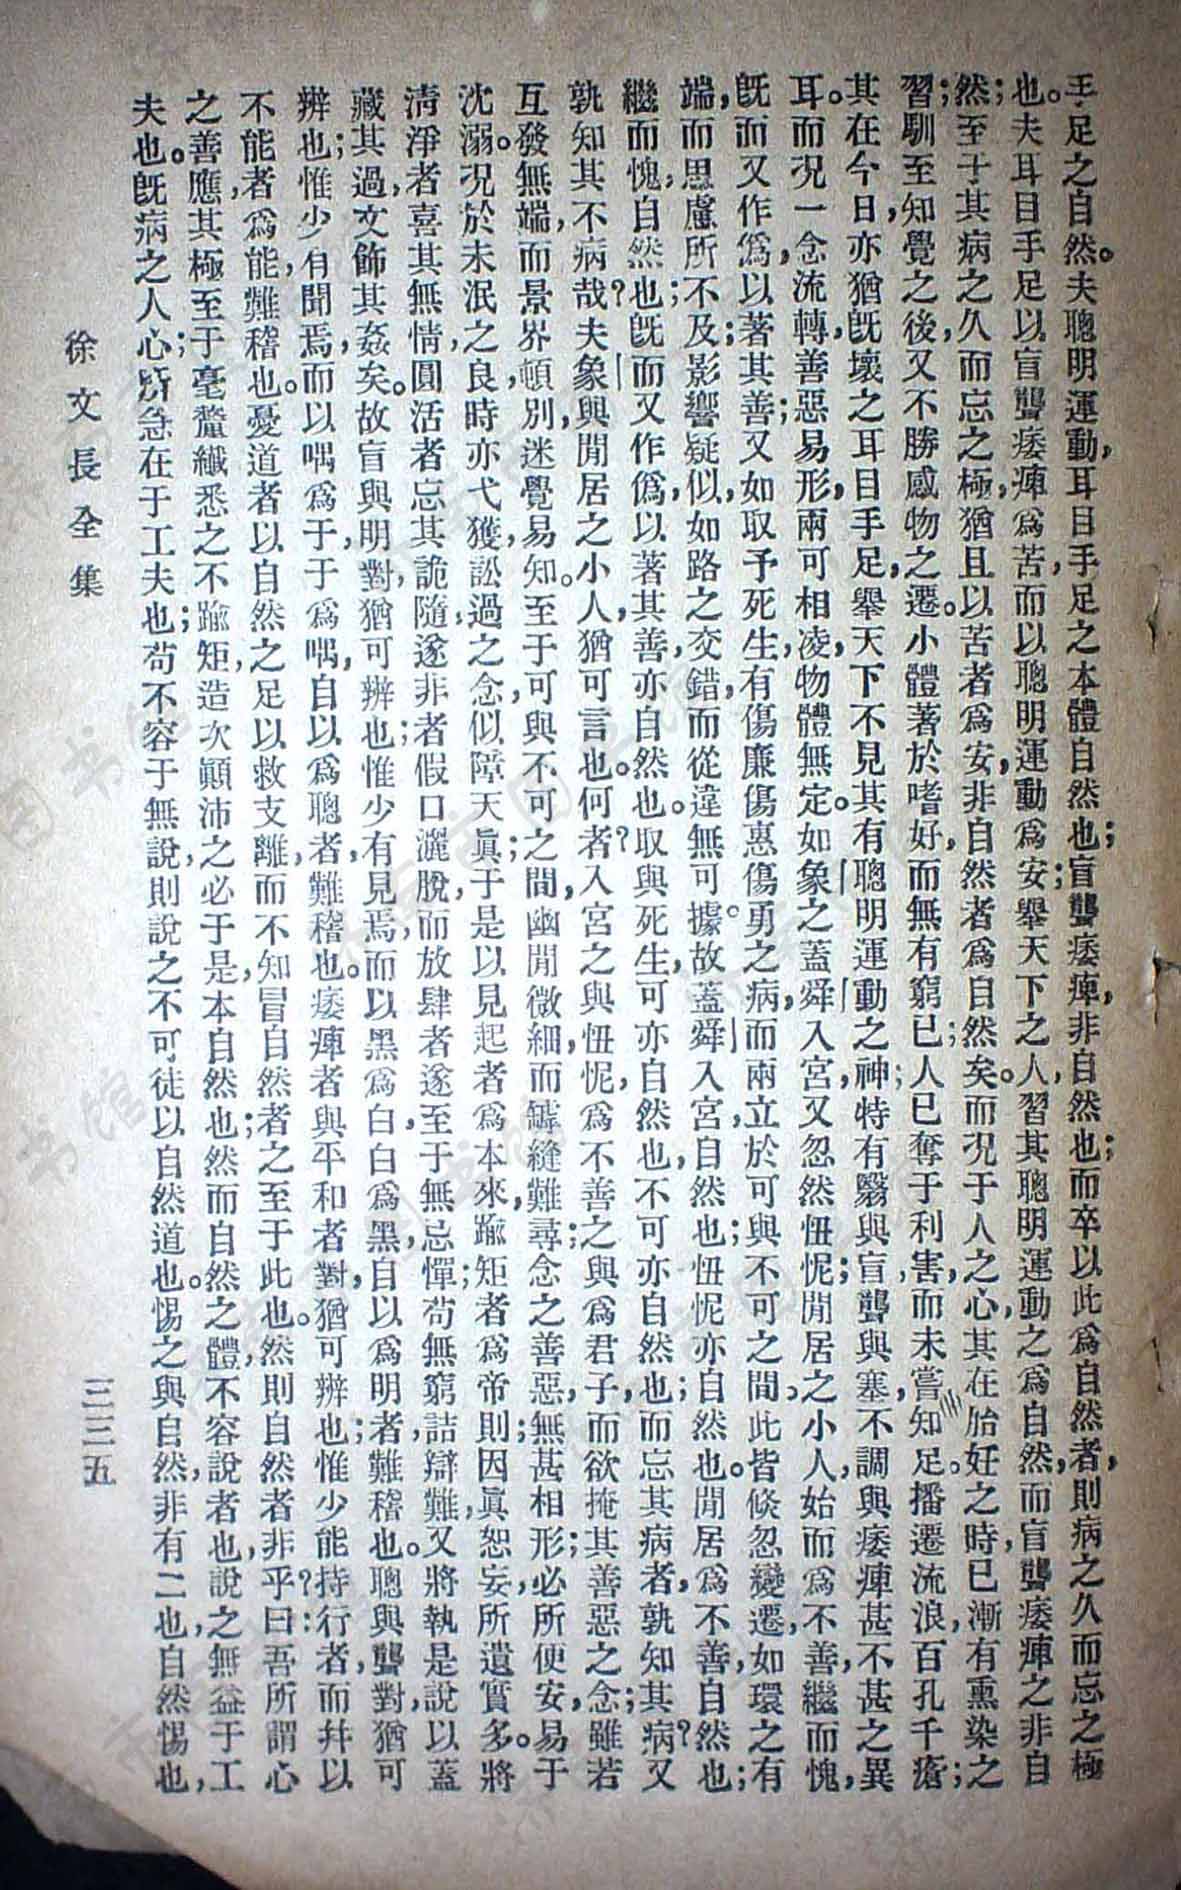 手足之自然。夫聰明運動，耳目手足之本體自然也；盲聾痿痺，非自然也；而卒以此爲自然者，則病之久而忘之極
也。夫耳目手足以盲聾痿痺爲苦，而以聰明運動爲安；舉天下之人，習其聰明運動之爲自然，而盲聾痿痺之非自
然；至于其病之久而忘之極，猶且以苦者爲安，非自然者爲自然矣。而況于人之心，其在胎妊之時，已漸有熏染之
習；馴至知覺之後，又不勝感物之遷。小體著於嗜好，而無有窮已；人已奪于利害，而未嘗知足。播遷流浪，百孔千瘡；
其在今日，亦猶既壞之耳目手足，舉天下不見其有聰明運動之神，特有翳與盲；聾與塞，不調與痿痺甚不甚之異
耳。而況一念流轉，善惡易形，兩可相凌，物體無定。如象之蓋舜，入宮又忽然忸怩；閒居之小人，始而爲不善，繼而愧，
既而又作爲，以著其善；又如取予死生，有傷廉傷惠傷勇之病，而兩立於可與不可之間。此皆倏忽變遷，如環之有
端，而思慮所不及；影響疑似，如路之交錯，而從違無可據。故蓋舜入宮，自然也；忸怩亦自然也。閒居爲不善，自然也；
繼而愧，自然也；既而又作僞，以著其善，亦自然也。取與死生，可亦自然也，不可亦自然也；而忘其病者，孰知其病？又
孰知其不病哉？夫象與閒居之小人，猶可言也。何者？入宮之與忸怩，爲不善之與爲君子，而欲掩其善惡之念；雖若
互發無端，而景界頓別，迷覺易知。至于可與不可之間，幽閒微細，而罅縫難尋；念之善惡，無甚相形；必所便安，易于
沈溺。況於未泯之良，時亦弋獲，訟過之念，似障天眞；于是以見起者爲本來，踰矩者爲帝則；因眞恕妄，所遺實多。將
淸淨者，喜其無情；圓活者，忘其詭隨；遂非者，假口灑脫；而放肆者，遂至于無忌憚；苟無窮詰，辯難，又將執是說以蓋
藏其過，文飾其姦矣。故盲與明對，猶可辨也；惟少有見焉，而以黑爲白，白爲黑，自以爲明者，難稽也。聰與聾對，猶可
辨也；惟少有聞焉，而以喁爲于，于爲喁，自以爲聰者，難稽也。痿痺者與平和者對，猶可辨也；惟少能持行者，而幷以
不能者爲能，難稽也。憂道者以自然之足以救支離，而不知冒自然者之至于此也。然則自然者非乎？曰：吾所謂心
之善應，其極至于毫釐纖悉之不踰矩，造次顚沛之必于是，本自然也；然而自然之體，不容說者也，說之無益于工
夫也。既病之人心，所急在于工夫也；苟不容于無說，則說之不可徒以自然道也。惕之與自然，非有二也，自然惕也，
徐文長全集
三三五